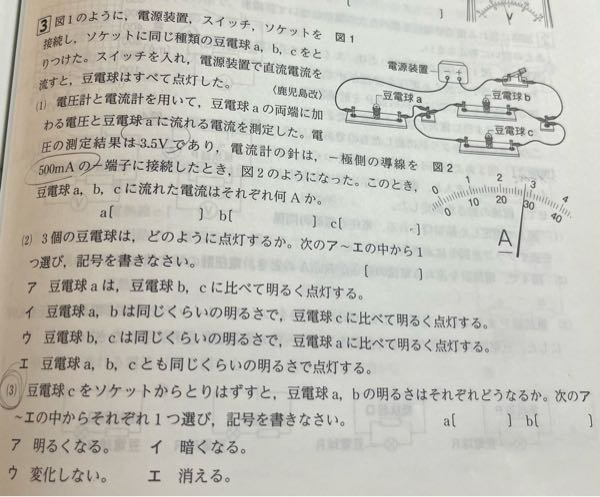 3 図1のように，電源装置，スイッチ，ソケットを
接続し，ソケットに同じ種類の豆電球a，b，cをと
りつけた。スイッチを入れ，電源装置で直流電流を
流すと，豆電球はすべて点灯した。
〈鹿児島改〉
(1) 電圧計と電流計を用いて，豆電球aの両端に加
わる電圧と豆電球aに流れる電流を測定した。電
圧の測定結果は3.5Vであり，電流計の針は，－極側の導線を
500mAの－端子に接続したとき，図2のようになった。このとき，
豆電球a，b，cに流れた電流はそれぞれ何Aか。
a[ ] b[ ] c[ ]
(2) 3個の豆電球は，どのように点灯するか。次のア～エの中から1
つ選び，記号を書きなさい。 [ ]
ア 豆電球aは，豆電球b，cに比べて明るく点灯する。
イ 豆電球a，bは同じくらいの明るさで，豆電球cに比べて明るく点灯する。
ウ 豆電球b，cは同じくらいの明るさで，豆電球aに比べて明るく点灯する。
エ 豆電球a，b，cとも同じくらいの明るさで点灯する。
(3) 豆電球cをソケットからとりはずすと，豆電球a，bの明るさはそれぞれどうなるか。次のア
～エの中からそれぞれ1つ選び，記号を書きなさい。 a[ ] b[ ]
ア 明るくなる。 イ 暗くなる。
ウ 変化しない。 エ 消える。
図1
V
電源装置
－ ＋
豆電球a
豆電球b
豆電球c
図2
0 1 2 3 4
0 10 20 30 40
A